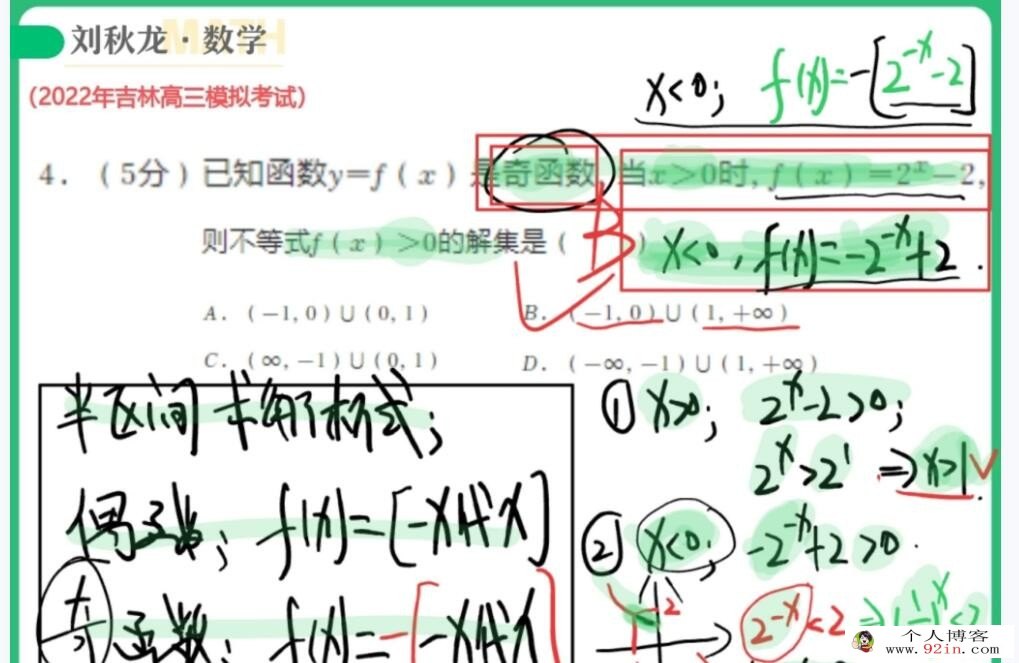 刘秋龙·数学
MATH
(2022年吉林高三模拟考试)
x<0; f(x)=-[2^{-x}-2]
4.(5分)已知函数y=f(x)是奇函数,当x>0时,f(x)=2^x-2,
则不等式f(x)>0的解集是( B )
x<0, f(x)=-2^{-x}+2.
A.(-1,0)∪(0,1) B.(-1,0)∪(1,+∞)
C.(∞,-1)∪(0,1) D.(-∞,-1)∪(1,+∞)
半区间求解析式;
偶函数; f(x)=[-x代x]
函数; f(x)=-[-x代x
① x>0; 2^x-2>0;
2^x>2^1 ⇒x>1
② x<0; -2^{-x}+2>0.
2^{-x}<2 ⇒
个人博客
www.92in.com